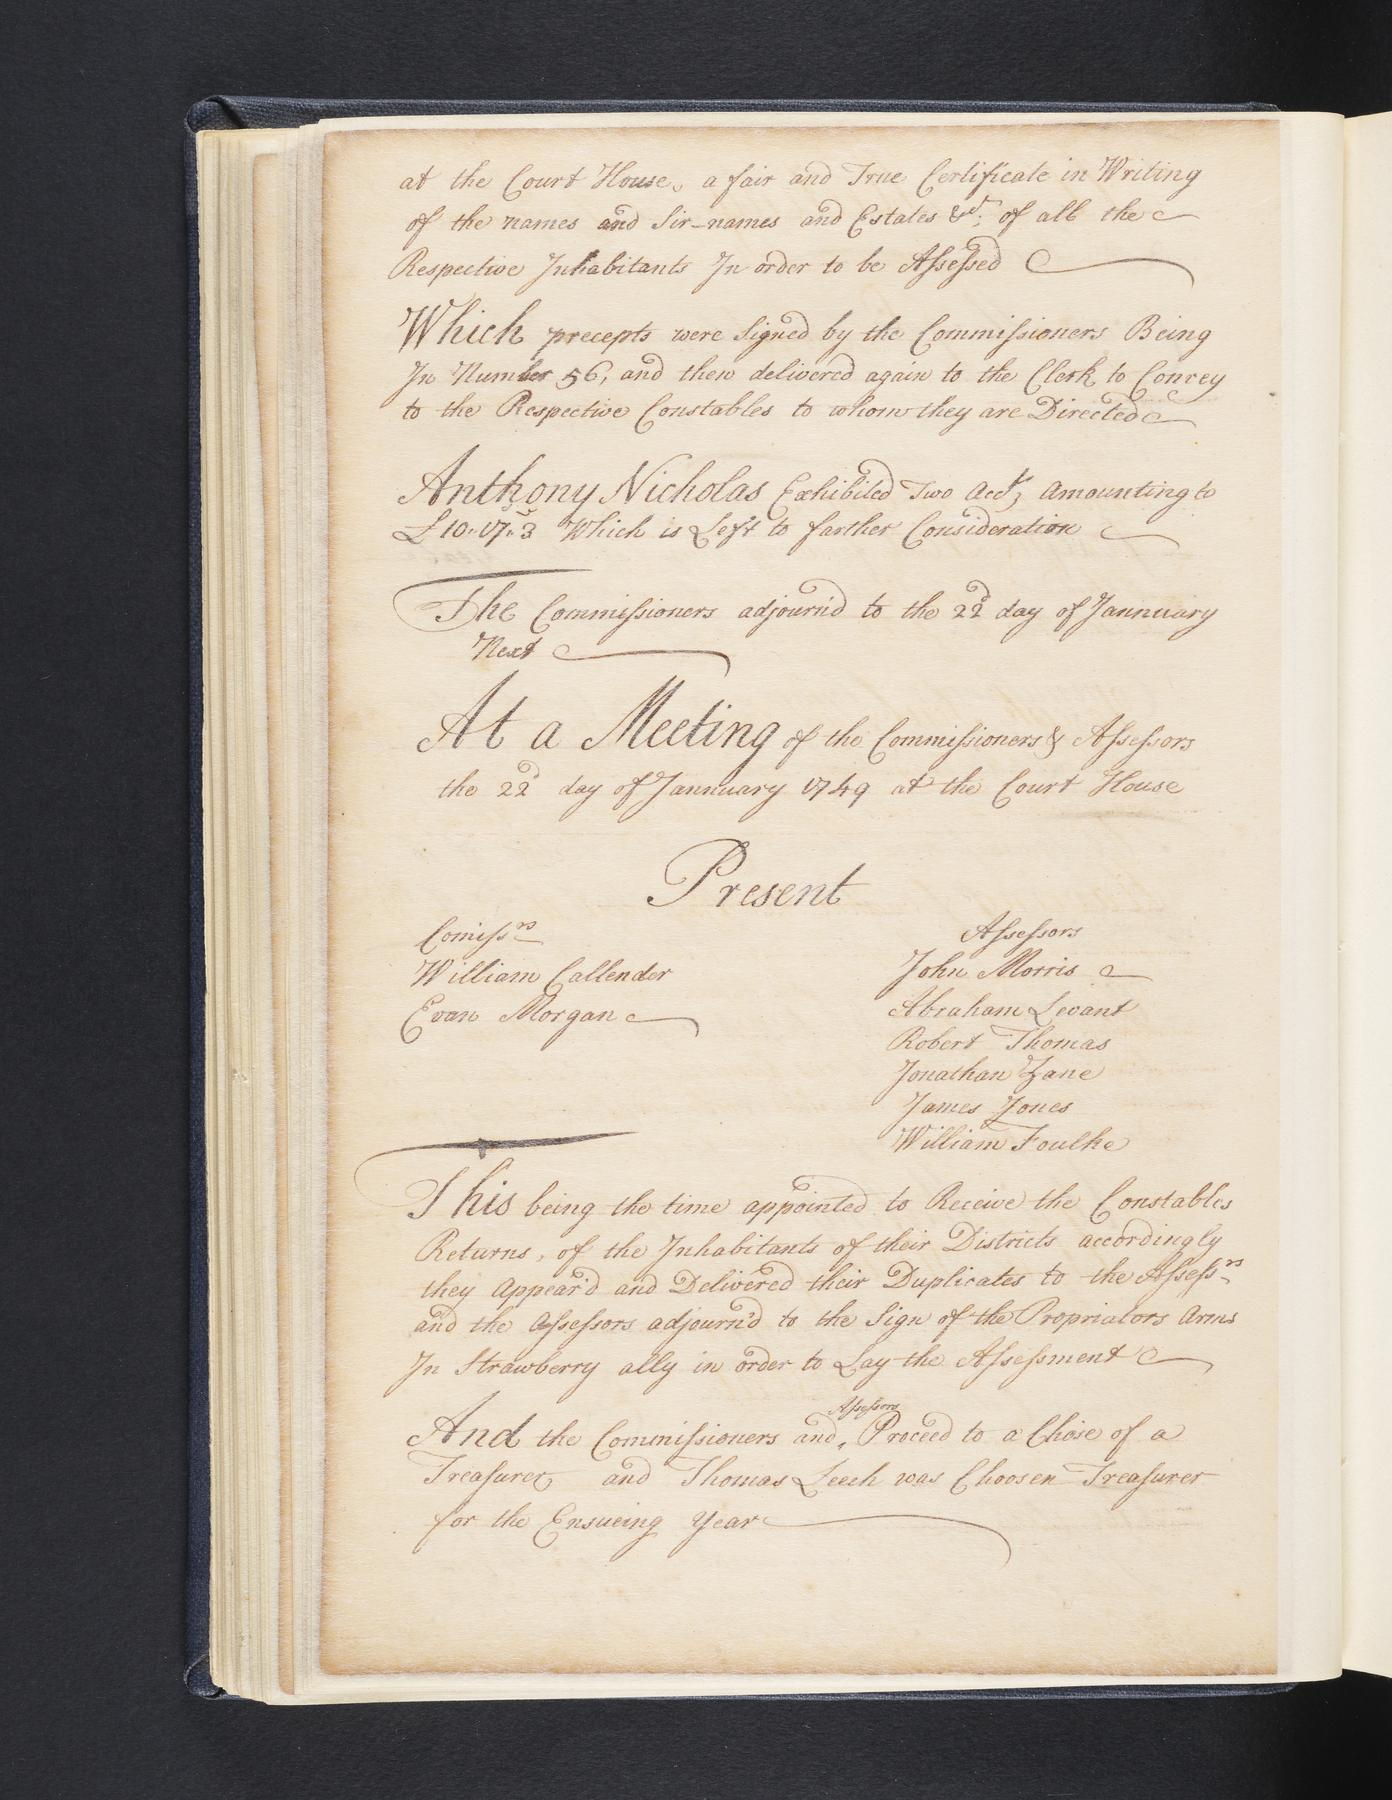 at the Court House, a fair and True Certificate in Writing
of the names and Sir-names and Estates &ct: of all the
Respective Inhabitants In order to be Assessed
Which precepts were Signed by the Commissioners Being
In Number 56, and then delivered again to the Clerk to Convey
to the Respective Constables to whom they are Directed
Anthony Nicholas Exhibited Two Accts Amounting to
£10.17.3 Which is Left to farther Consideration
The Commissioners adjourn'd to the 22d day of Jannuary
Next
At a Meeting of the Commissioners & Assessors
the 22d day of Jannuary 1749 at the Court House
Present
Comissrs
William Callender
Evan Morgan
Assessors
John Morris
Abraham Levant
Robert Thomas
Jonathan Zane
James Jones
William Foulke
This being the time appointed to Receive the Constables
Returns, of the Inhabitants of their Districts accordingly
they Appear'd and Delivered their Duplicates to the Assessrs
and the Assessors adjourn'd to the Sign of the Propriators Arms
In Strawberry ally in order to Lay the Assessment
Assessors
And the Commissioners and, Proceed to a Chose of a
Treasurer and Thomas Leech was Choosen Treasurer
for the Ensueing Year